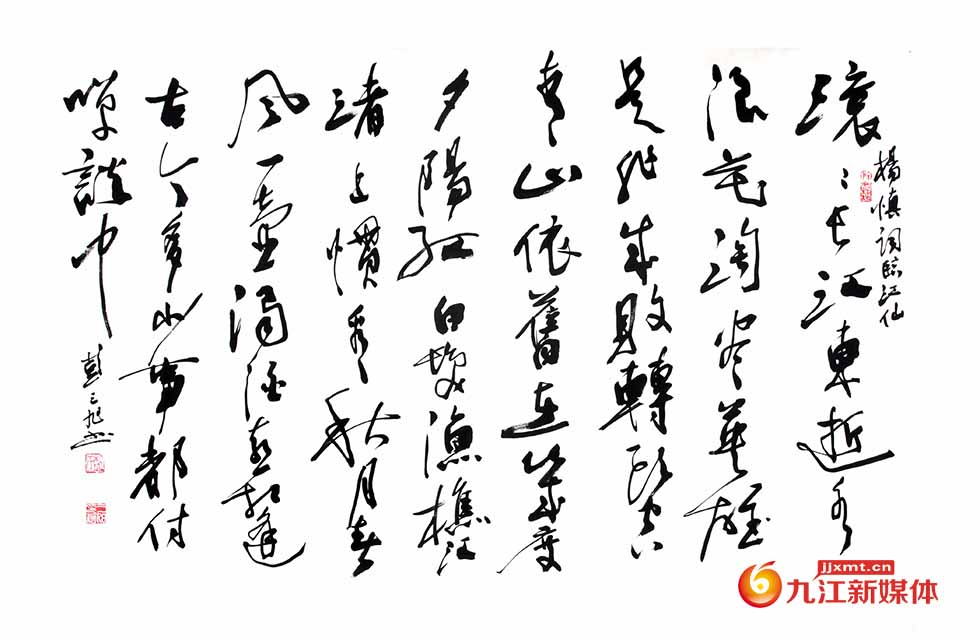 楊慎詞臨江仙
滾滾長江東逝水
浪花淘盡英雄
是非成敗轉頭空
青山依舊在幾度
夕陽紅白髮漁樵江
渚上慣看秋月春
風一壺濁酒喜相逢
古今多少事都付
咲談中
jjxmt.cn
九江新媒体